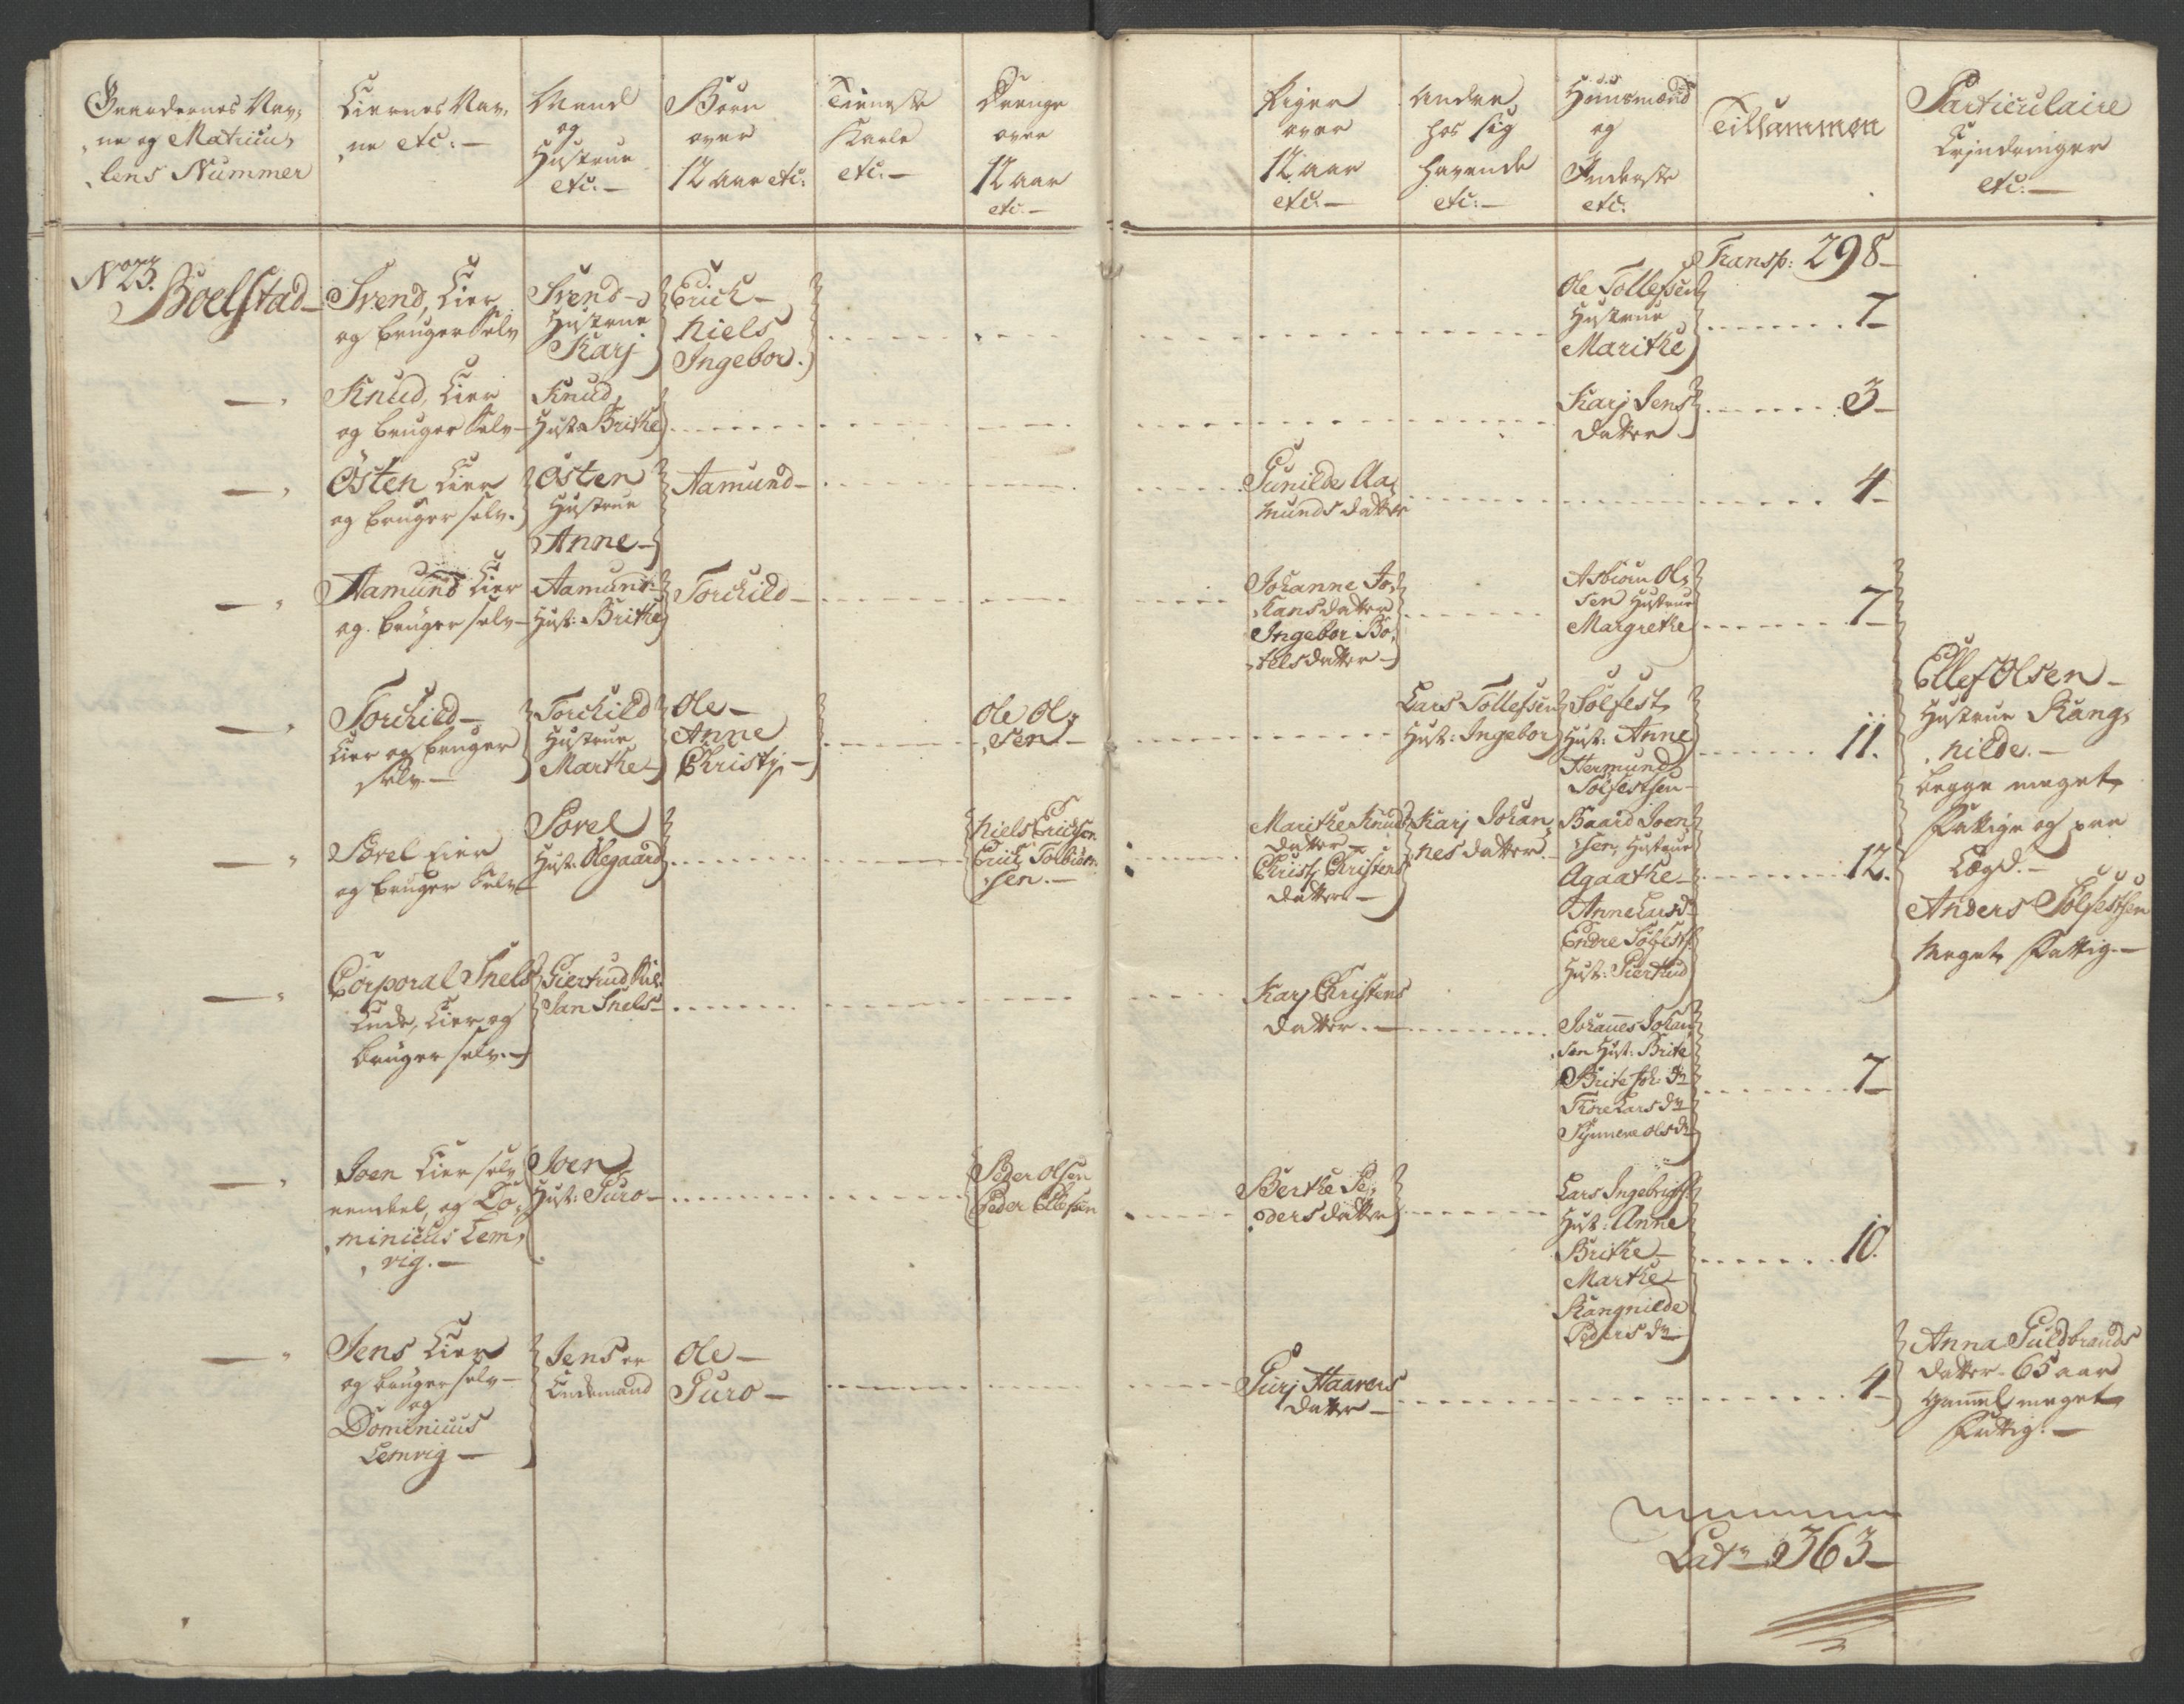 Gaardernes Nav,
ne og Matricu,
lens Nummer
Eiernes Nav,
ne etc: —
Mand
og
Hustrue
etc. —
Børn
over
12 aar etc:
Tieneste
Karle
etc. —
Drenge
over
12 aar
etc —
Piger
over
12 aar
etc: —
Andre
hos sig
havende
etc: —
Huusmænd
og
Inderste
etc.
Tilsammen
Particulaire
etc. —
Transp: 298 —
No 23.
Boelstad —
Svend, Eier
og bruger Selv
Svend —
Hustrue
Karj
Erich —
Niels
Ingebor.
Ole Tollefsen
Hustrue
Marithe
7 —
Knud, Eier
og bruger Selv —
Knud,
Hust: Brithe
Karj Jens
datter —
3 —
Østen Eier
og bruger selv.
Østen
Hustrue
Anne —
Aamund —
Gunilde Aa,
munds datter
4 —
Aamund Eier
og bruger selv —
Aamund
Hust: Brithe
Torchild —
Johanne Jo,
hans datter
Ingebor Bo,
tels datter —
Asbiørn Ol,
sen Hustrue
Margrethe
7 —
Torchild —
Eier og bruger
selv. —
Torchild
Hustrue
Marthe —
Ole —
Anne
Christj —
Ole Ol,
sen —
Lars Tollefsen
Hust: Ingebor
Solfest,
Hust: Anne
Hermund
Solfestsen —
11.
Ellef Olsen —
Hustrue Rang,
nilde. —
begge meget
Fattige og paa
Lægd. —
Anders Solfestsen
Meget Fattig. —
Sorel Eier
og bruger Selv —
Sorel
Hust: Olegaard
Niels Erichsen
Erich Tolbiørn
sen. —
Marithe Knuds
datter —
Christj Christens
datter —
Karj Johan,
nes datter
Baard Joen
sen, Hustrue
Agaathe —
Anne Lars dr
Endre Solfests
Hust: Giertrud
12.
Corporal Snels
Enke, Eier og
bruger selv. —
Giertrud
Jan Snels —
Karj Christens
datter. —
Johañes Johan,
sen Hust: Brite
Brite Joh: dr
Thore Lars dr
Synneve Ols dr
7 —
Joen Eier selv
eendeel, og Do,
minicus Lem,
vig. —
Joen
Hust: Guro —
Peder Olsen
Peder Ellefsen
Berthe Pe,
ders datter
Lars Ingebrigts
Hust: Anne
Brithe —
Marthe —
Rangnilde
Peders dr
10.
Jens Eier
og bruger selv —
og
Dominicus
Lemvig —
Jens er
Enkemand
Ole —
Guro —
Gurj Haavers
datter —
4 —
Anna Guldbrands
datter — 65 aar
gam̄el, meget
Fattig. —
Lat: 363 —